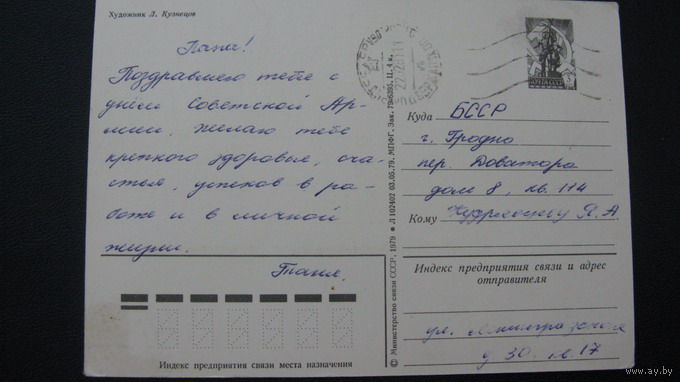 Художник Л. Кузнецов
Папа!
Поздравляю тебя с
днём Советской Ар-
мии. Желаю тебе
крепкого здоровья, сча-
стья, успехов в ра-
боте и в личной
жизни.
Таня.
Индекс предприятия связи места назначения
© Министерство связи СССР, 1979 Л 102402 03.05.79. МПФГ. Зак. 796395. Ц. 4 к.
Куда БССР
г. Гродно
пер. Доватора
дом 8, кв. 114
Кому Я. А.
Индекс предприятия связи и адрес
отправителя
ул.
д 30 кв 17
www.ay.by